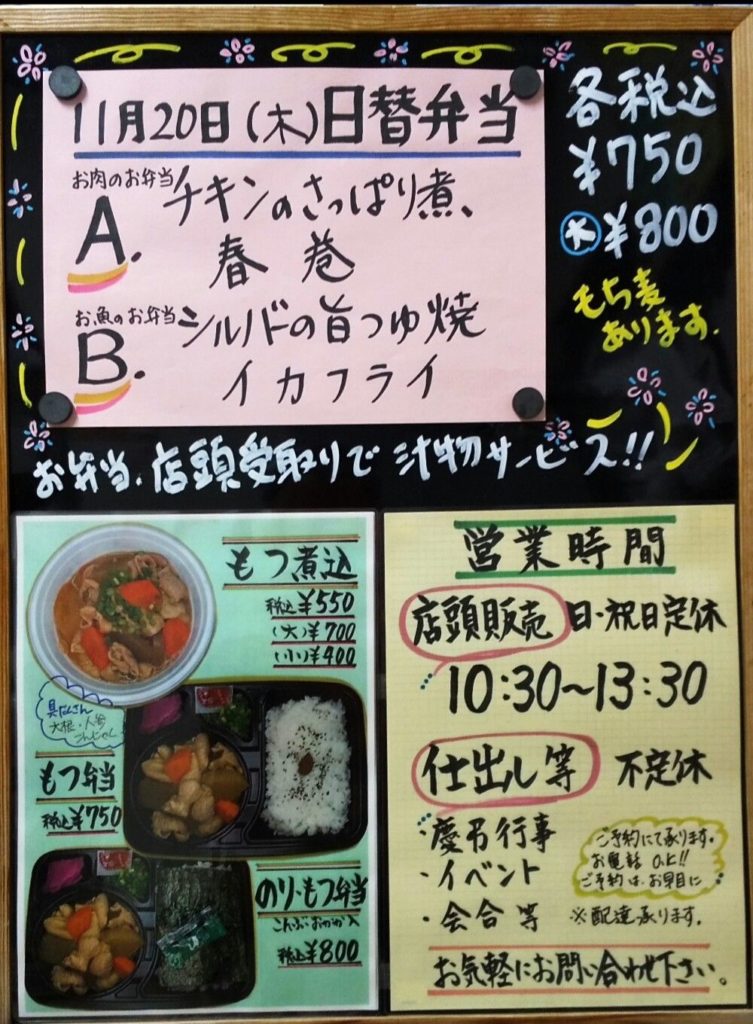 11月20日(木)日替弁当
お肉のお弁当
A. チキンのさっぱり煮、
春巻
お魚のお弁当
B. シルバーの旨つゆ焼
イカフライ
各税込
¥750
大¥800
もち麦
あります.
お弁当、店頭受取りで汁物サービス!!
もつ煮込
税込¥550
(大)¥700
(小)¥400
具だくさん
大根・人参
こんにゃく
もつ弁当
税込¥750
のり・もつ弁当
こんぶ・おかか入
税込¥800
営業時間
店頭販売 日・祝日定休
10:30~13:30
仕出し等 不定休
・慶弔行事
・イベント
・会合等
ご予約にて承ります.
お電話 O.K!!
ご予約は、お早目に
※配達承ります.
お気軽にお問い合わせ下さい。